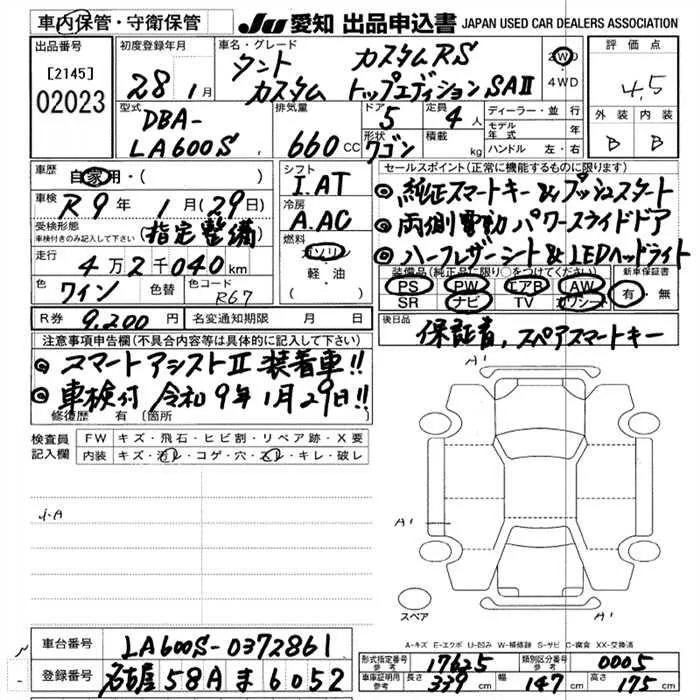 車内保管・守衛保管
JU 愛知 出品申込書 JAPAN USED CAR DEALERS ASSOCIATION
出品番号
[2145]
02023
初度登録年月
28 1月
車名・グレード
タント カスタムRS
カスタム トップエディションSAⅡ
2WD
・
4WD
評価点
4.5
外装 内装
B B
型式
DBA-
LA600S
排気量
660cc
ドア 5
定員 4人
形状 ワゴン
積載 kg
ディーラー・並行
モデル年式 年
ハンドル 左・右
車歴
自家用・( )
車検
R9年 1月(29日)
受検形態
車検付きのみ記入して下さい
(指定整備)
走行
4万2千040km
色 ワイン 色替 色コード R67
シフト
I.AT
冷房
A.AC
燃料
ガソリン
軽・油
( )
セールスポイント(正常に機能するものに限ります)
◉ 純正スマートキー&プッシュスタート
◉ 両側電動パワースライドドア
◉ ハーフレザーシート&LEDヘッドライト
装備品(純正品に限り○をつけてください)
PS PW エアB AW
SR ナビ TV カワシート
新車保証書
有・無
R券 9,200円 名変通知期限 月 日
後日品
保証書、スペアスマートキー
注意事項申告欄(不具合内容等は具体的に記入して下さい)
◉ スマートアシストⅡ装着車!!
◉ 車検付 令和9年1月29日!!
修復歴 有(箇所
検査員
記入欄
FW キズ・飛石・ヒビ割・リペア跡・X要
内装 キズ・汚レ・コゲ・穴・スレ・キレ・破レ
A'
A'
A'
スペア
A-キズ E-エクボ U-凹み W-補修跡 S-サビ C-腐食 XX-交換済
車台番号 LA600S-0372861
登録番号 名古屋 58A ま 6052
形式指定番号 参考 17625
類別区分番号 参考 0005
車庫証明用 参考 長さ 339cm 幅 147cm 高さ 175cm